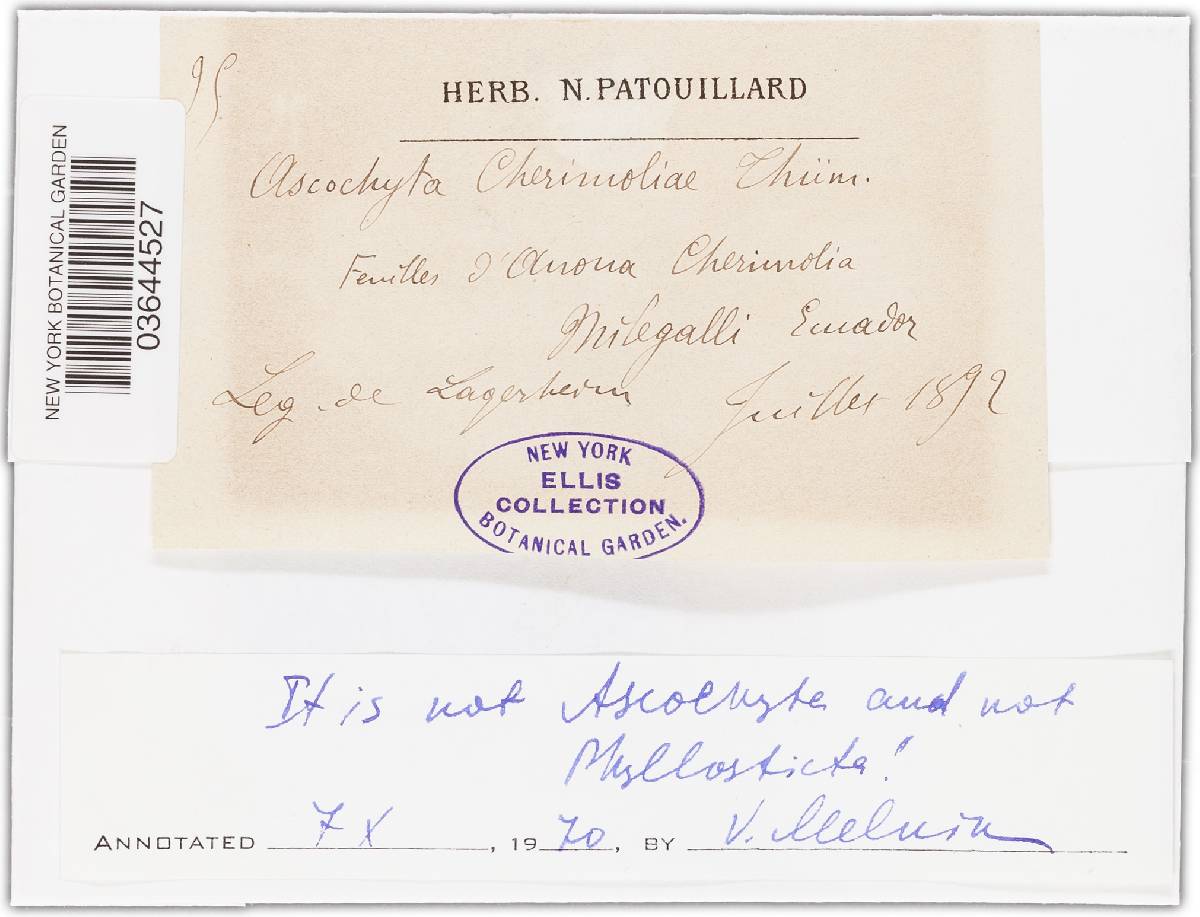 95.
HERB. N. PATOUILLARD
Ascochyta Cherimoliae Thüm.
Feuilles d'Anona Cherimolia
Milegalli Ecuador
Leg. de Lagerheim Juillet 1892
NEW YORK BOTANICAL GARDEN
03644527
NEW YORK
ELLIS
COLLECTION
BOTANICAL GARDEN.
It is not Ascochyta and not
Phyllosticta!
ANNOTATED 7 X , 1970, BY V. Melnik